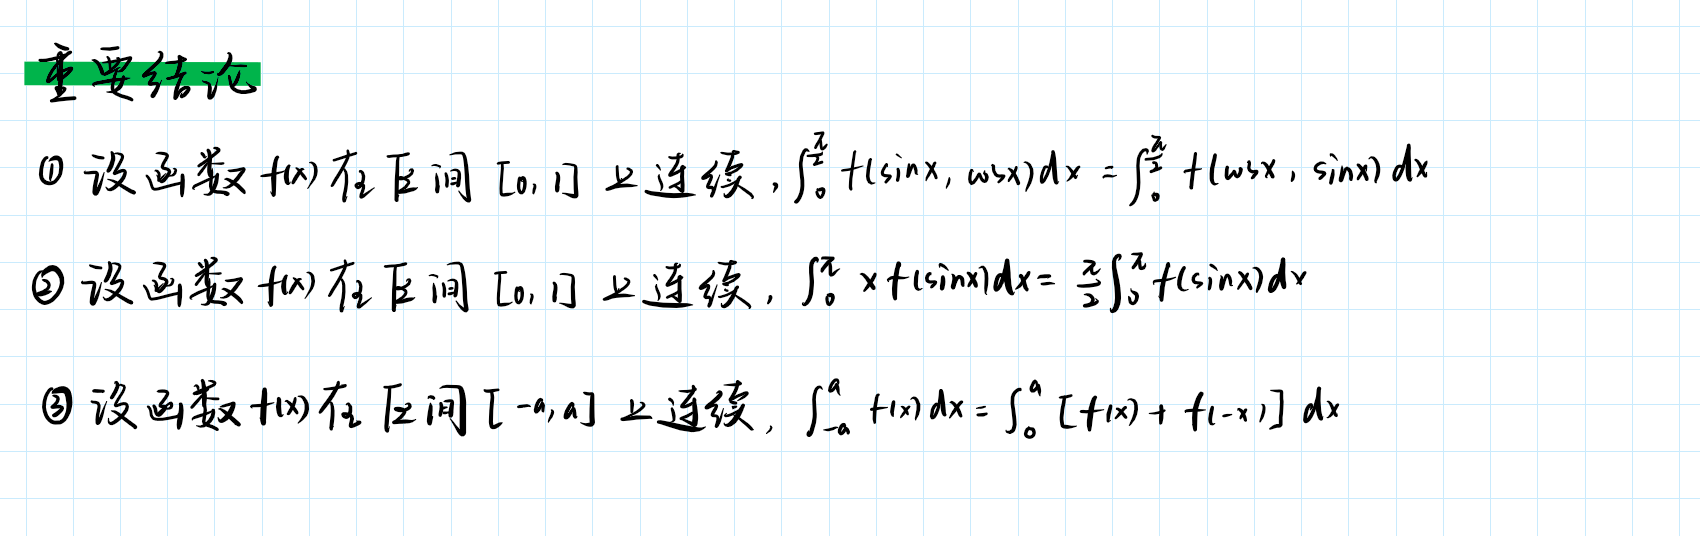 重要结论
① 设函数 f(x) 在区间 [0, 1] 上连续, ∫₀^{π/2} f(sinx, cosx)dx = ∫₀^{π/2} f(cosx, sinx) dx
② 设函数 f(x) 在区间 [0, 1] 上连续, ∫₀^π x f(sinx)dx = π/2 ∫₀^π f(sinx)dx
③ 设函数 f(x) 在区间 [-a, a] 上连续, ∫₋ₐ^a f(x) dx = ∫₀^a [f(x) + f(-x)] dx